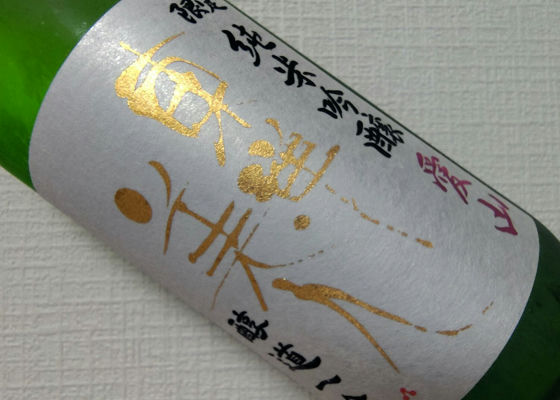 愛山
限定 純米吟醸
東洋美人
醇道一